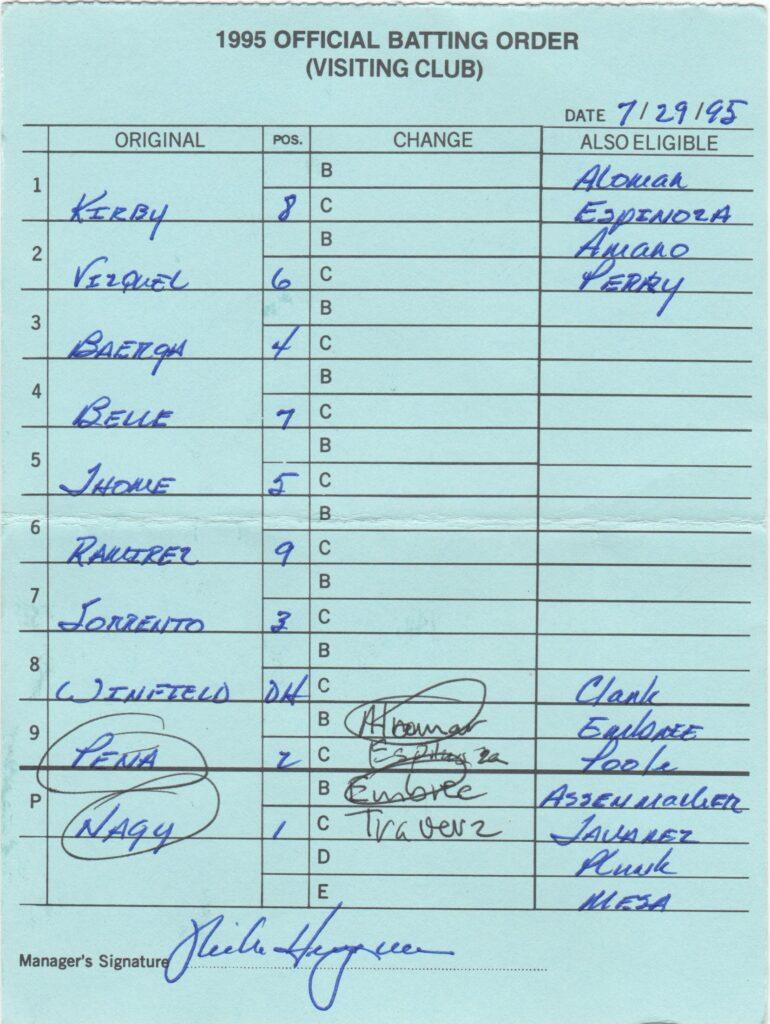 1995 OFFICIAL BATTING ORDER
(VISITING CLUB)
DATE 7/29/95
ORIGINAL POS. CHANGE ALSO ELIGIBLE
1 B Alomar
KIRBY 8 C ESPINOZA
2 B Amaro
VIZQUEL 6 C PERRY
3 B
BAERGA 4 C
4 B
BELLE 7 C
5 B
THOME 5 C
6 B
RAMIREZ 9 C
7 B
SORRENTO 3 C
8 B
WINFIELD DH C Clark
9 B Alromar EMBREE
PENA 2 C Espinoza Poole
P B Embree ASSENMACHER
NAGY 1 C Traverz TAVAREZ
D Plunk
E MESA
Manager's Signature